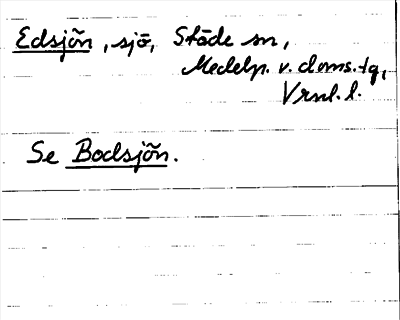 Edsjön, sjö, Stöde sn,
Medelp. v. doms.-tg,
Vrnl. l.
Se Bodsjön.